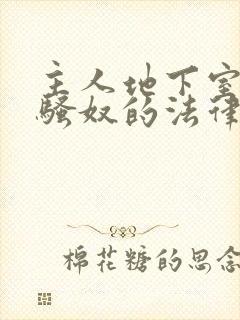 主人地下室
骚奴的法律
棉花糖的思念